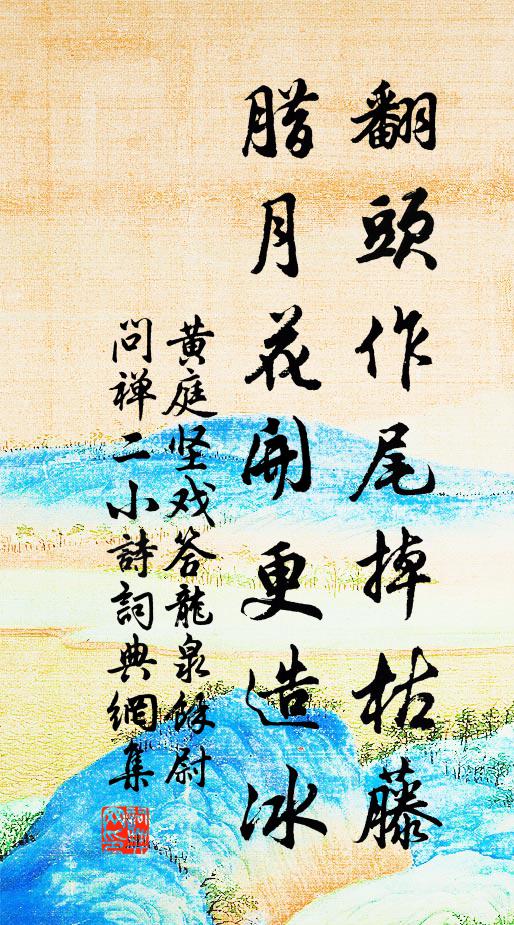 翻頭作尾掉枯藤
腊月花開更造冰
黄庭坚戏答龍泉餘尉
問禅二小詩詞典網集